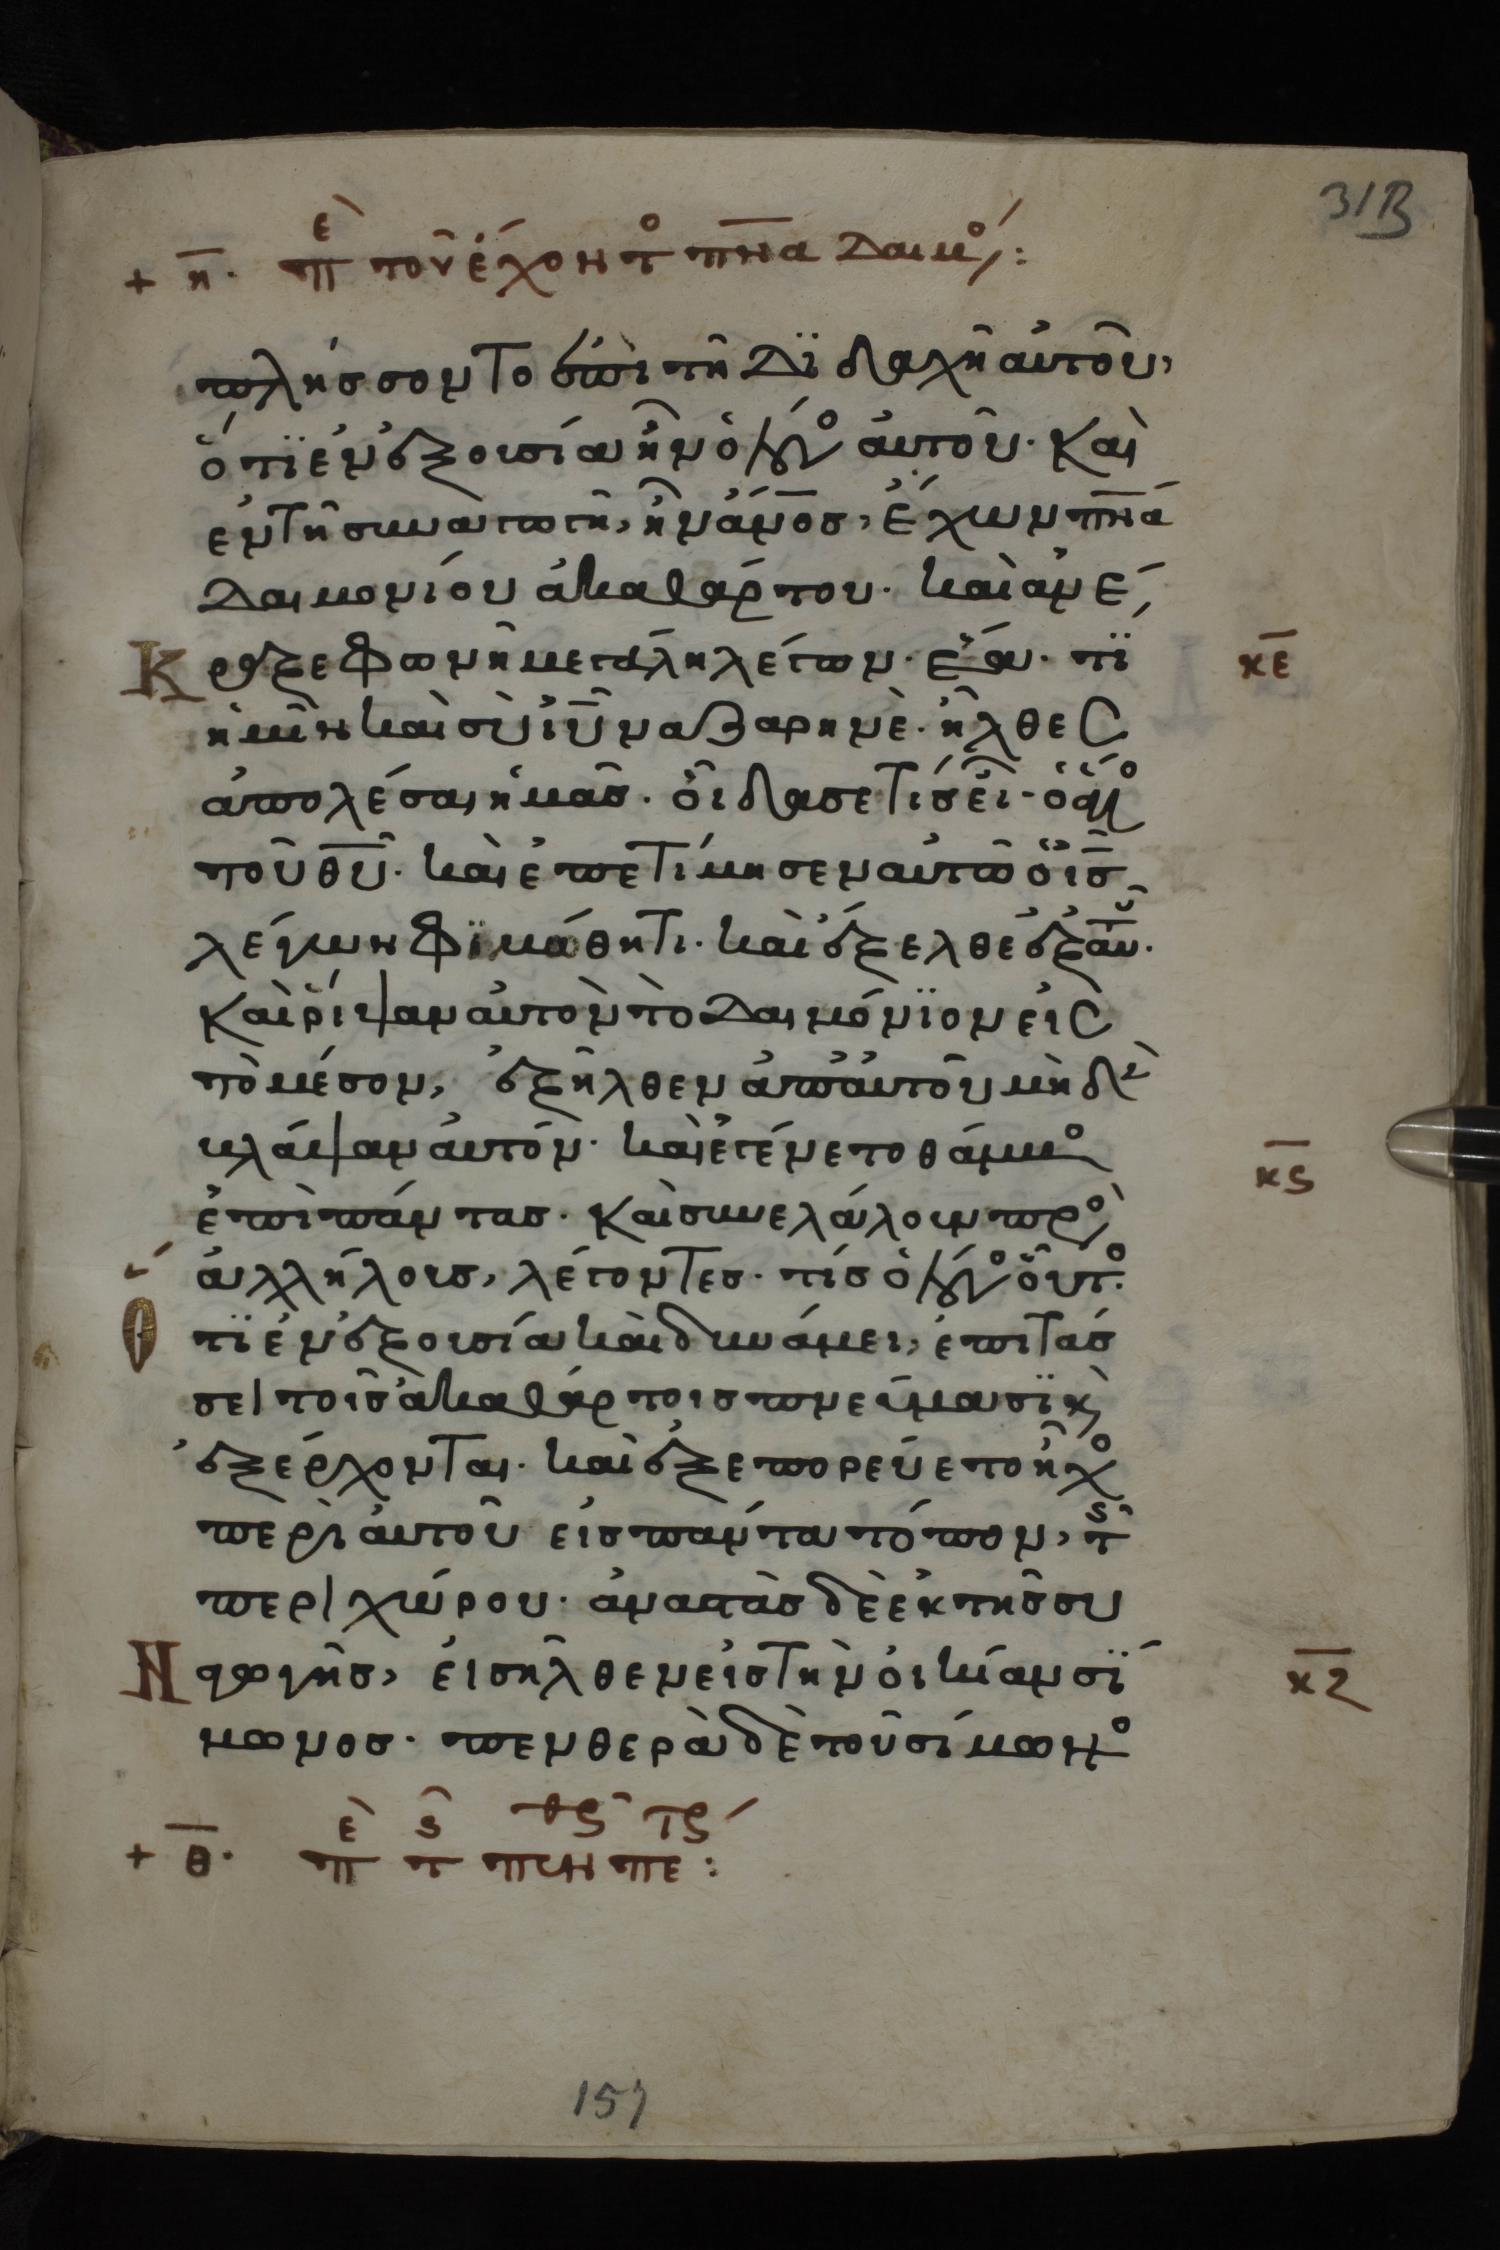 31B
+ η̅· πε τοῦ ἔχοντο π̅ν̅α δαιμο:
πλήσσοντο ἐπὶ τῆ διδαχῆ αὐτοῦ,
ὅτι ἐν ἐξουσία ἦν ὁ λόγο αὐτοῦ· Καὶ
ἐν τῆ συναγωγῆ, ἦν ἄν̅ο̅σ, ἔχων π̅ν̅α
δαιμονίου ἀκαθάρτου· καὶ ἀνέ
κραξε φωνῆ μεγάλη λέγων· ἔα· τί κ̅ε̅
ἡμῖν καὶ σὺ ἰ̅υ̅ ναζαρηνὲ· ἦλθες
ἀπολέσαι ἡμᾶσ· οἶδα σε τίσ εἶ· ὁ ἅγιο
τοῦ θ̅υ̅· καὶ ἐπετίμησεν αὐτῶ ὁ ι̅σ̅
λέγων φιμώθητι· καὶ ἔξελθε ἐξ αυτ
Καὶ ῥίψαν αὐτὸν τὸ δαιμόνιον εἰς
τὸ μέσον, ἐξῆλθεν ἀπ' αὐτοῦ μηδὲ
βλάψαν αὐτόν· καὶ ἐγένετο θάμβο κ̅ς̅
ἐπὶ πάντασ· καὶ συνελάλουν πρὸ
ἀλλήλουσ, λέγοντεσ· τίσ ὁ λόγο οὗτο·
ὅτι ἐν ἐξουσία καὶ δυνάμει, ἐπιτάσ
σει τοῖσ ἀκαθάρτοισ πνεύμασι κ
ἐξέρχονται· καὶ ἐξεπορεύετο ἦχο
περὶ αὐτοῦ εἰσ πάντα τόπον, τῆς
περιχώρου· ἀναστὰσ δὲ ἐκ τῆσ συ
Ναγωγῆσ, εἰσῆλθεν εἰσ τὴν οἰκίαν σί κ̅ζ̅
μωνοσ· πενθερὰ δὲ τοῦ σίμωνο
+ θ̅· πε τς πενθρς πετρ:
157